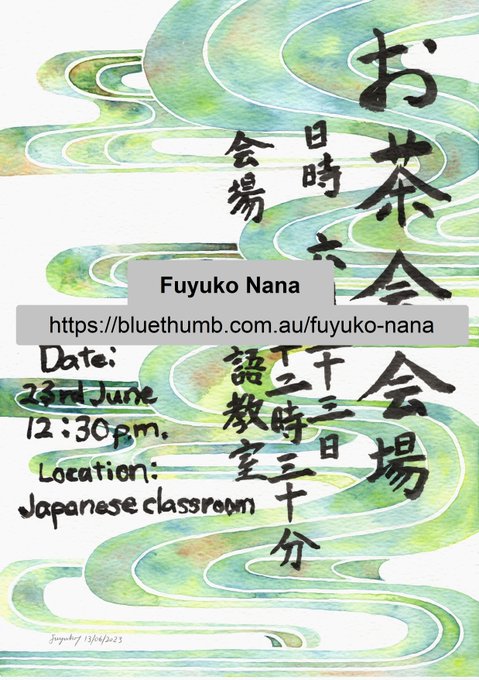 お茶会会場
日時 六 十三日
十二時三十分
会場 語教室
Fuyuko Nana
https://bluethumb.com.au/fuyuko-nana
Date:
23rd June
12:30p.m.
Location:
Japanese classroom
fuyuko 13/06/2023